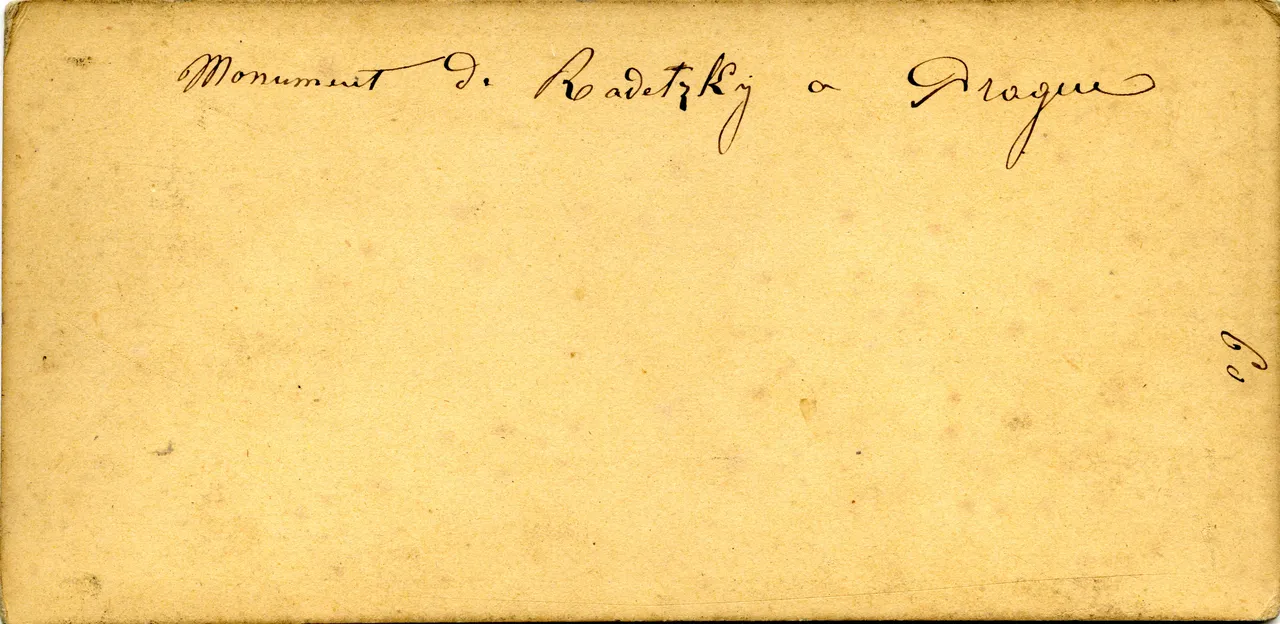 Monument de Radetzky a Prague
60